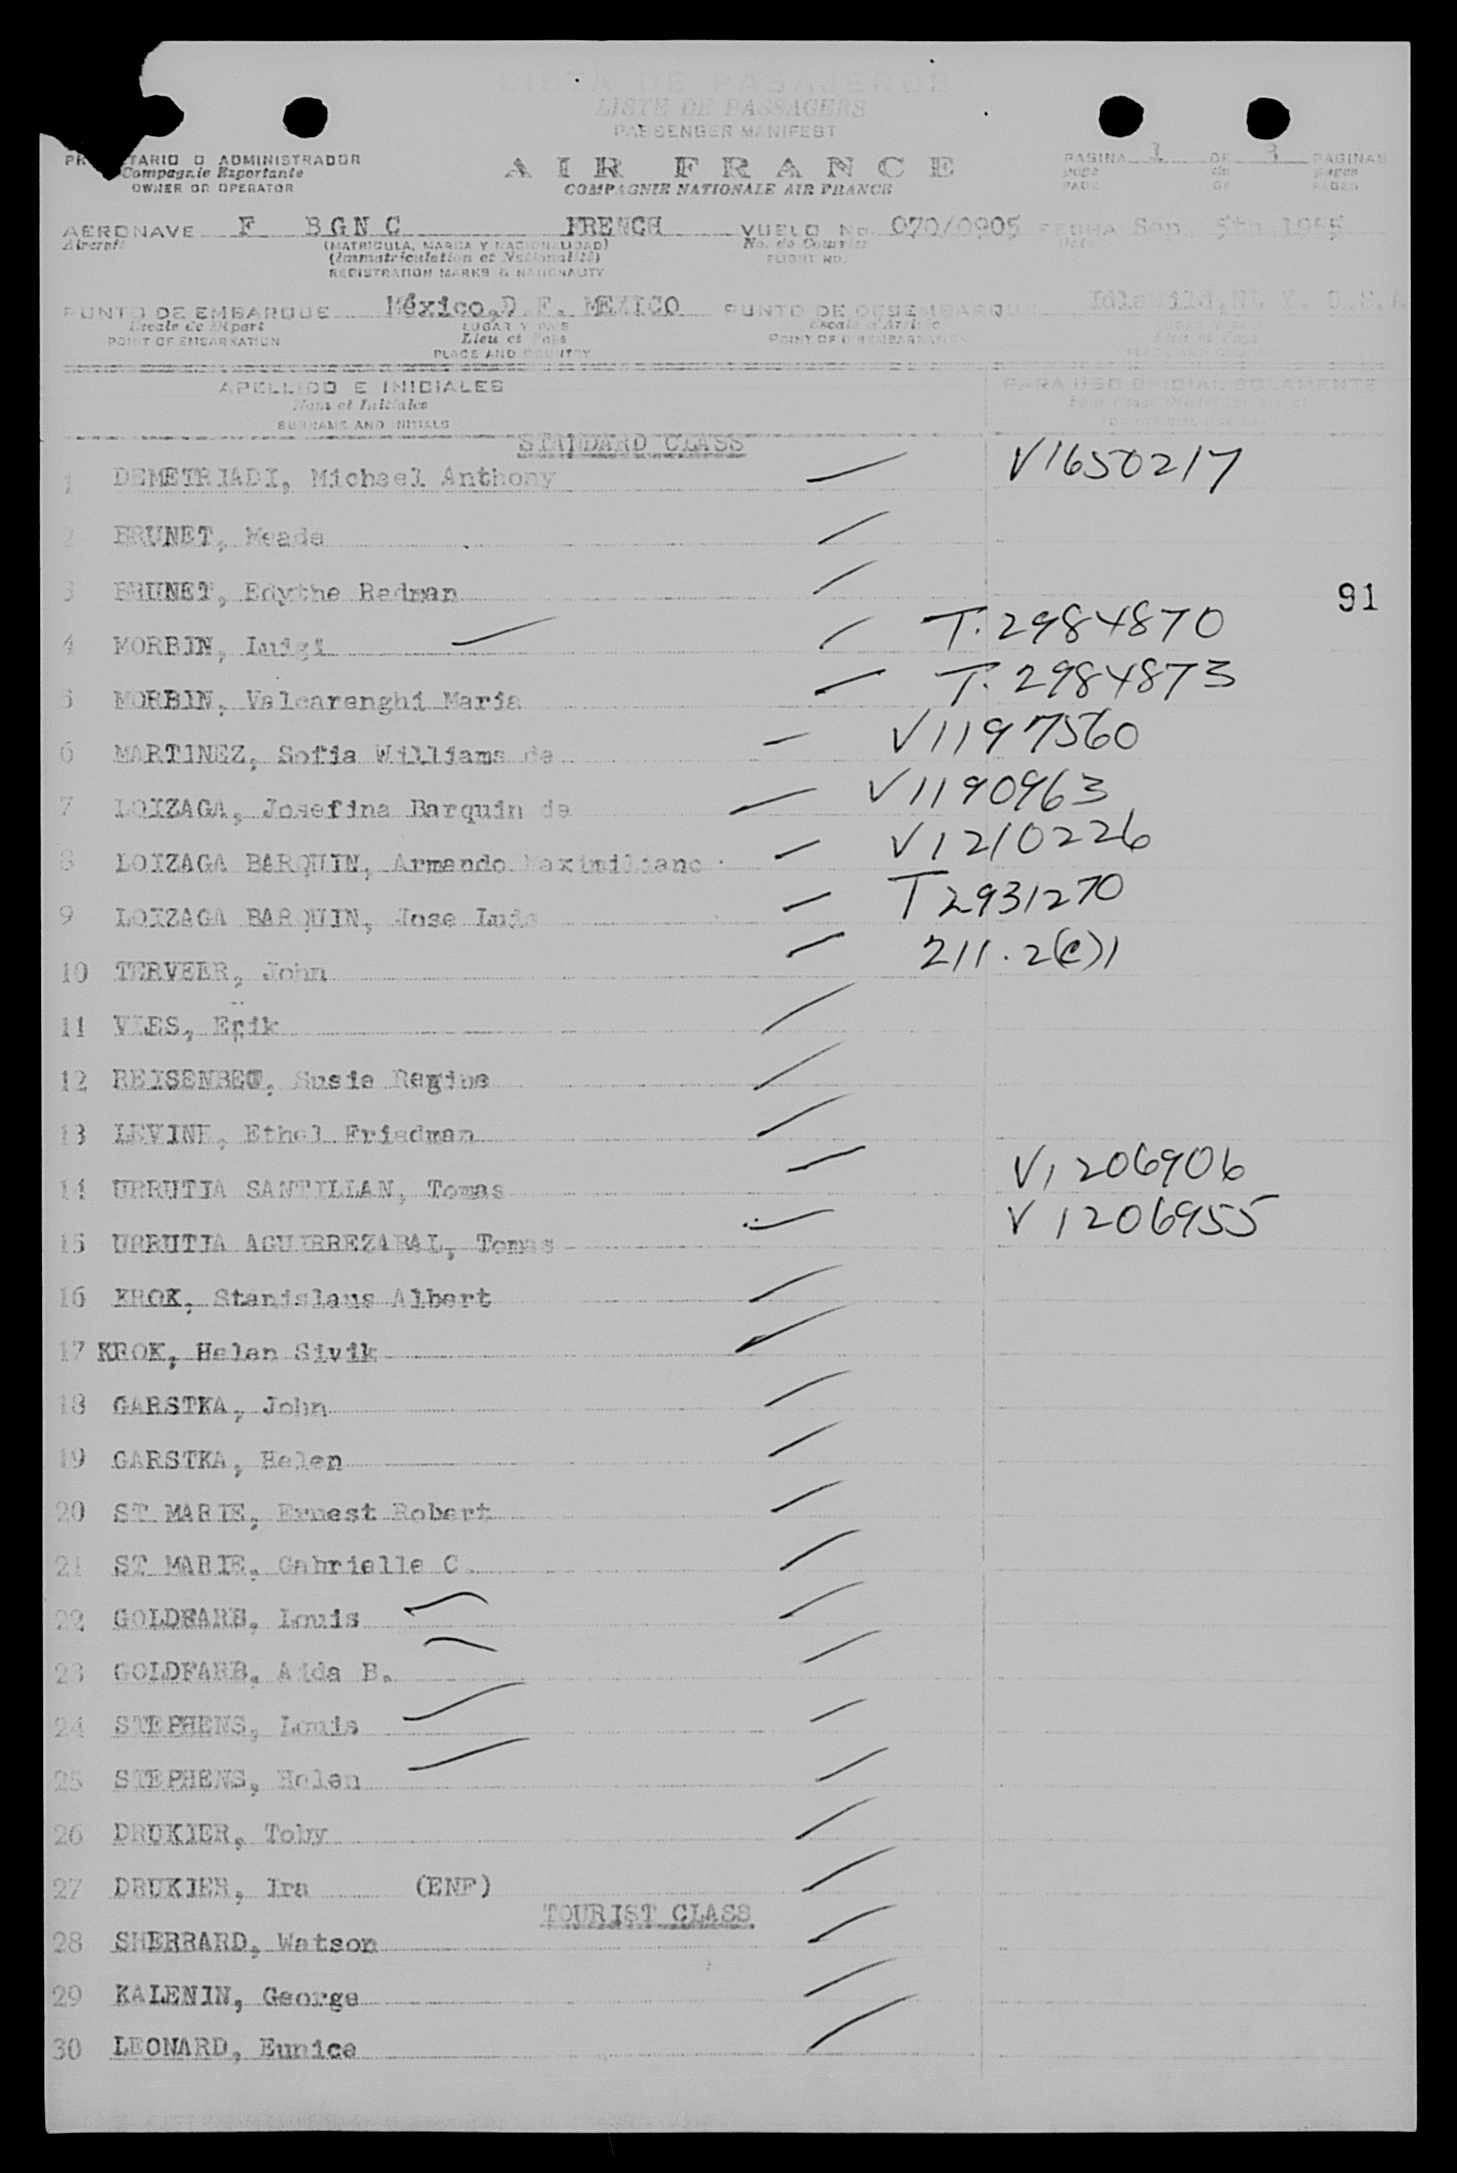 LISTA DE PASAJEROS
LISTE DE PASSAGERS
PASSENGER MANIFEST
PR TARIO O ADMINISTRADOR
Compagnie Exportante
OWNER OR OPERATOR
AIR FRANCE
COMPAGNIE NATIONALE AIR FRANCE
PAGINA DE 3 PAGINAS
PAGE OF PAGES
AERONAVE F BGNC FRENCH VUELO No. 070/0905 FECHA Sep. 5th 1955
Aircraft (MATRICULA, MARCA Y NACIONALIDAD) No. de Courrier Date
(Immatriculation et Nationalité) FLIGHT NO.
REGISTRATION MARKS & NATIONALITY
PUNTO DE EMBARQUE México,D.F. MEXICO PUNTO DE DESEMBARQUE Idlewild,N. Y. U.S.A
Escale de Départ LUGAR Y PAIS Escale d'Arrivée
POINT OF EMBARKATION Lieu et Pais POINT OF DISEMBARKATION Lieu et Pays
PLACE AND COUNTRY
APELLIDO E INICIALES PARA USO OFICIAL SOLAMENTE
Nom et Initiales
SURNAME AND INITIALS
STANDARD CLASS
1 DEMETRIADI, Michael Anthony V1650217
2 BRUNET, Meade
3 BRUNET, Edythe Redman 91
4 MORBIN, Luigi T. 2984870
5 MORBIN, Valcarenghi Maria T. 2984873
6 MARTINEZ, Sofia Williams de V1197560
7 LOIZAGA, Josefina Barquin de V1190963
8 LOIZAGA BARQUIN, Armando Maximiliano V1210226
9 LOIZAGA BARQUIN, Jose Luis T2931270
10 TERVEER, John 211.2(e)1
11 VIES, Erik
12 REISENBEG, Susie Regine
13 LEVINE, Ethel Friedman
14 URRUTIA SANTILLAN, Tomas V1206906
15 URRUTIA AGUIRREZABAL, Tomas V1206955
16 KROK, Stanislaus Albert
17 KROK, Helen Sivik
18 GARSTKA, John
19 GARSTKA, Helen
20 ST MARIE, Ernest Robert
21 ST MARIE, Gabrielle C.
22 GOLDFARB, Louis
23 GOLDFARB, Aida B.
24 STEPHENS, Louis
25 STEPHENS, Helen
26 DRUKIER, Toby
27 DRUKIER, Ira (ENF)
TOURIST CLASS
28 SHERRARD, Watson
29 KALENIN, George
30 LEONARD, Eunice